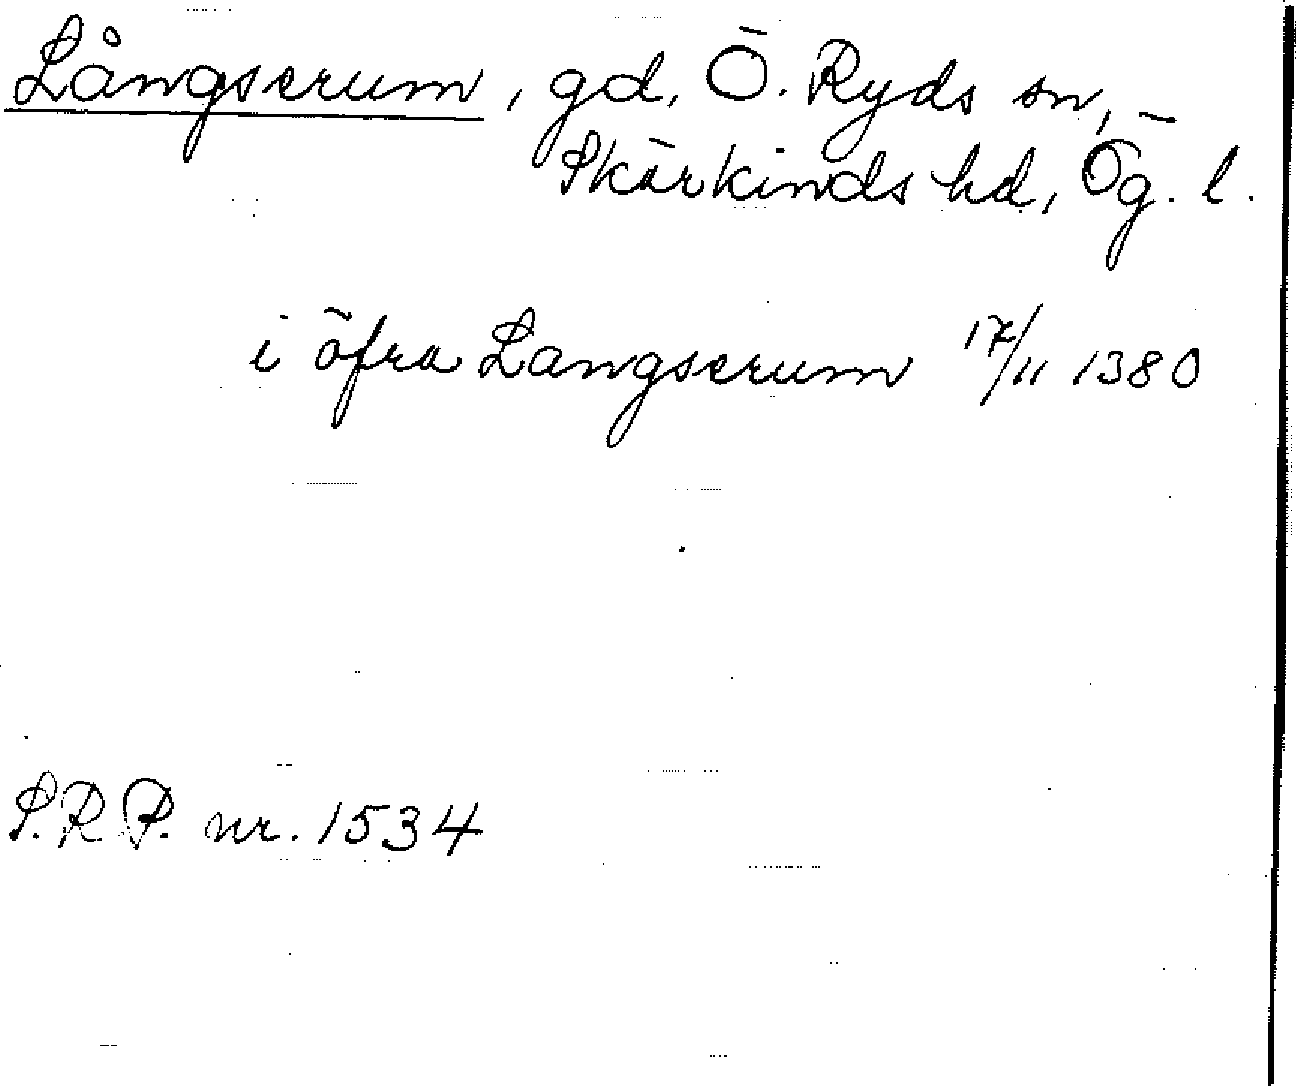 Långserum, gd, Ö. Ryds sn,
Skärkinds hd, Ög. l.
i öfra Langserum 17/11 1380
S.R.P. nr. 1534